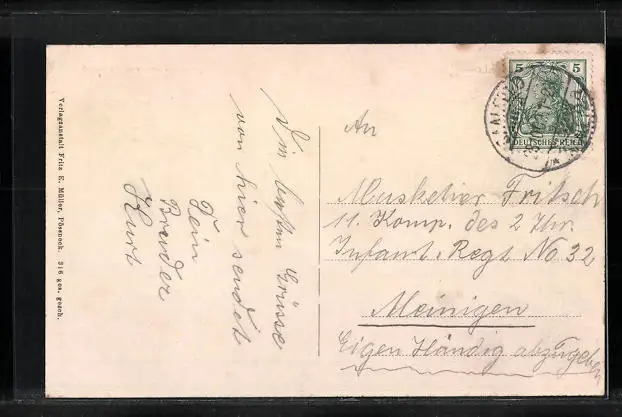 Verlagsanstalt Fritz E. Müller, Pössneck. 316 ges. gesch.
Die besten Grüsse
von hier sendet
Dein
Bruder
Kurt
5 5
DEUTSCHES REICH
An
Musketier Fritsch
11. Komp. des 2 Thr.
Infant. Regt No. 32
Meinigen
Eigen Händig abzugeben